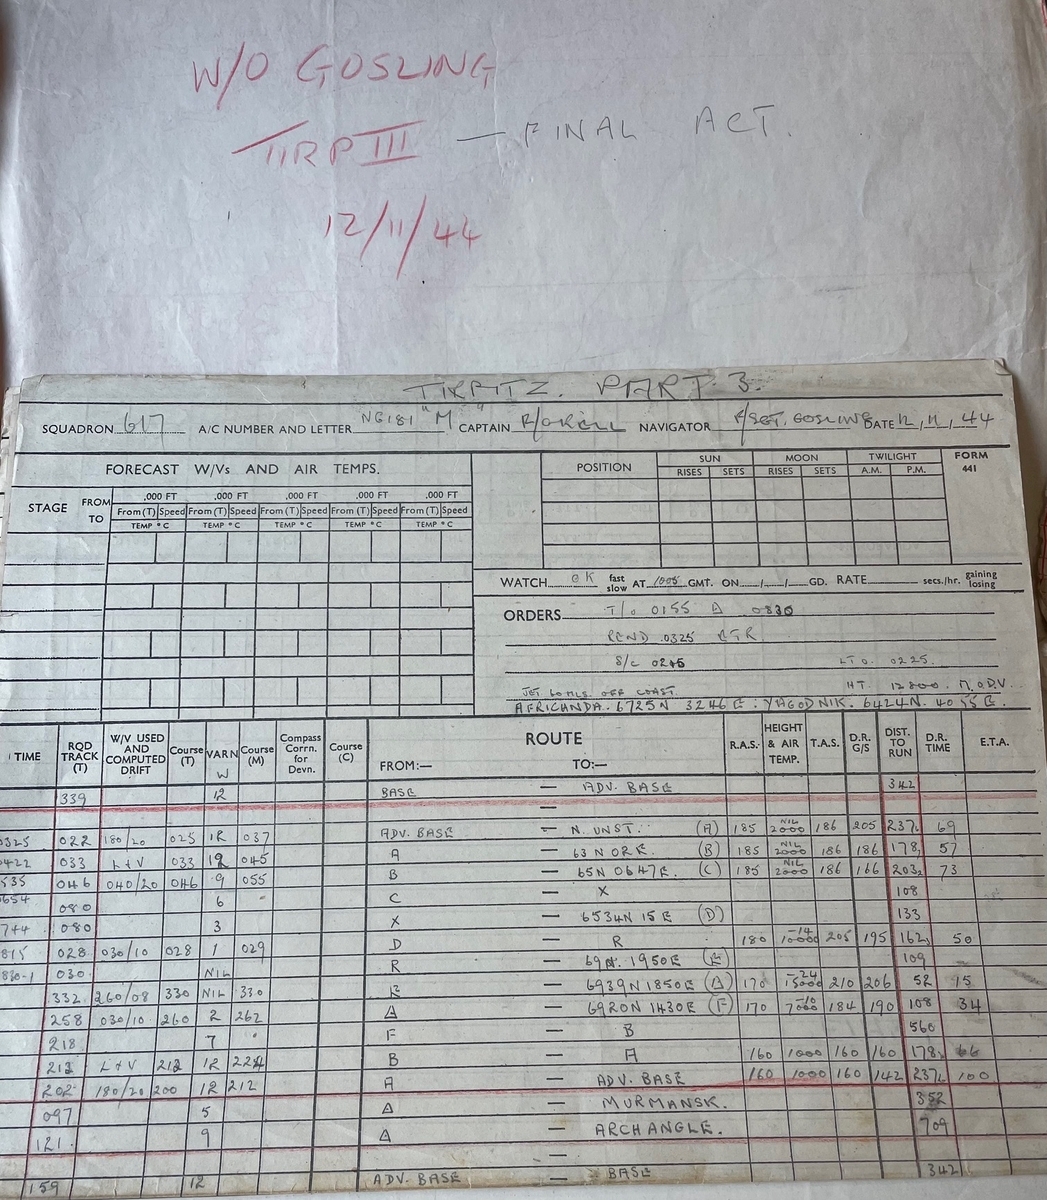 W/O GOSLING
TIRP III — FINAL ACT.
12/11/44
TIRPITZ. PART 3.
SQUADRON 617 A/C NUMBER AND LETTER NG181 "M" CAPTAIN NAVIGATOR F/SGT. GOSLING DATE 12/11/44
FORECAST W/Vs AND AIR TEMPS.
POSITION SUN MOON TWILIGHT FORM
RISES SETS RISES SETS A.M. P.M. 441
STAGE FROM TO
,000 FT ,000 FT ,000 FT ,000 FT ,000 FT
From (T) Speed From (T) Speed From (T) Speed From (T) Speed From (T) Speed
TEMP °C TEMP °C TEMP °C TEMP °C TEMP °C
WATCH OK fast slow AT 1005 GMT. ON / / GD. RATE secs./hr. gaining losing
ORDERS T/O 0155 Δ 0830
REND .0325 ETR
S/C 0245 LTO. 0225.
JET 60 MLS. OFF COAST. HT. 12800.
AFRICANDA. 6725N 3246E : YAGODNIK. 6424N. 4055E.
TIME RQD TRACK (T) W/V USED AND COMPUTED DRIFT Course (T) VARN W Course (M) Compass Corrn. for Devn. Course (C) ROUTE FROM:— TO:— R.A.S. HEIGHT & AIR TEMP. T.A.S. D.R. G/S DIST. TO RUN D.R. TIME E.T.A.
339 12 BASE — ADV. BASE 342
—
0325 022 180/20 025 12 037 ADV. BASE — N. UNST. (A) 185 NIL 2000 186 205 237 69
0422 033 L+V 033 12 045 A — 63N 02E. (B) 185 NIL 2000 186 186 178 57
535 046 040/20 046 9 055 B — 65N 0647E. (C) 185 NIL 2000 186 166 203 73
0654 080 6 C — X 108
744 080 3 X — 6534N 15E (D) 133
815 028 030/10 028 1 029 D — R 180 -14 10000 205 195 162 50
030 NIL R — 69N. 1950E (E) 109
332 260/08 330 NIL 330 E — 6939N 1850E (Δ) 170 -24 15000 210 206 52 15
258 030/10 260 2 262 Δ — 6920N 1430E (F) 170 -10 7000 184 190 108 34
218 7 F — B 560
212 L+V 212 12 224 B — A 160 1000 160 160 178 66
202 180/20 200 12 212 A — ADV. BASE 160 1000 160 142 237 100
097 5 Δ — MURMANSK. 352
121 9 Δ — ARCHANGLE. 709
—
159 12 ADV. BASE — BASE 342